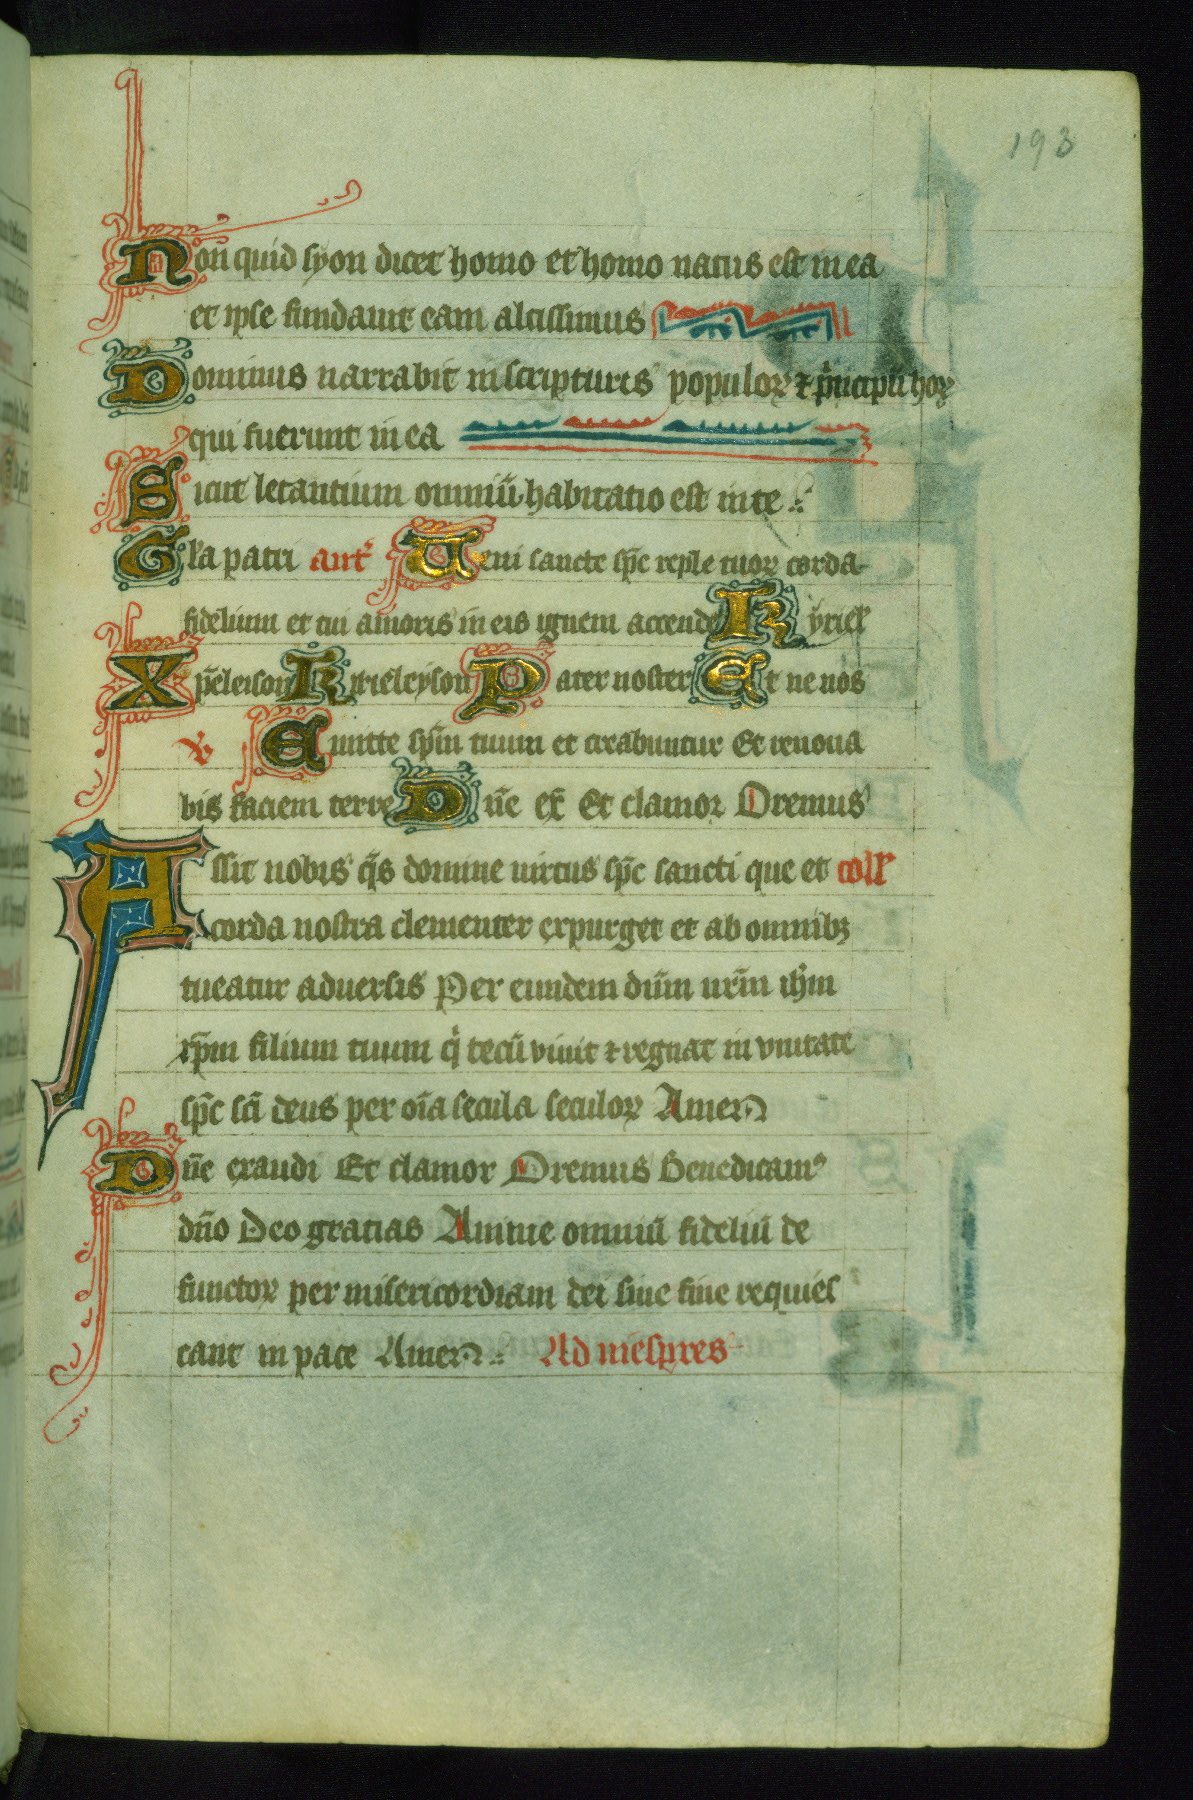 193
Non quid syon dicet homo et homo natus est in ea
et ipse fundauit eam altissimus
Dominus narrabit in scripturis populoꝝ ⁊ p̄ncipū hoꝝ
qui fuerunt in ea
Sicut letantium omniū habitatio est in te
Gl̄a patri ant̄ Ueni sancte sp̄c reple tuoꝝ corda
fidelium et tui amoris in eis ignem accende Kyriel̄
Xp̄eleison Kirieleyson Pater noster Et ne nos
℣ Emitte sp̄m tuum et creabuntur Et renoua
bis faciem terre Dn̄e ex̄ Et clamor Oremus
Assit nobis q̄s domine uirtus sp̄c sancti que et coll̄
corda nostra clementer expurget et ab omnibꝫ
tueatur aduersis Per eundem dūm nr̄m ihm̄
xp̄m filium tuum q̄ tecū viuit ⁊ regnat in vnitate
sp̄c sc̄i deus per oīa secula seculoꝝ Amen
Dn̄e exaudi Et clamor Oremus Benedicamꝰ
dn̄o Deo gratias Anime omniū fideliū de
functoꝝ per misericordiam dei sine fine requies
cant in pace Amen Ad uiespres